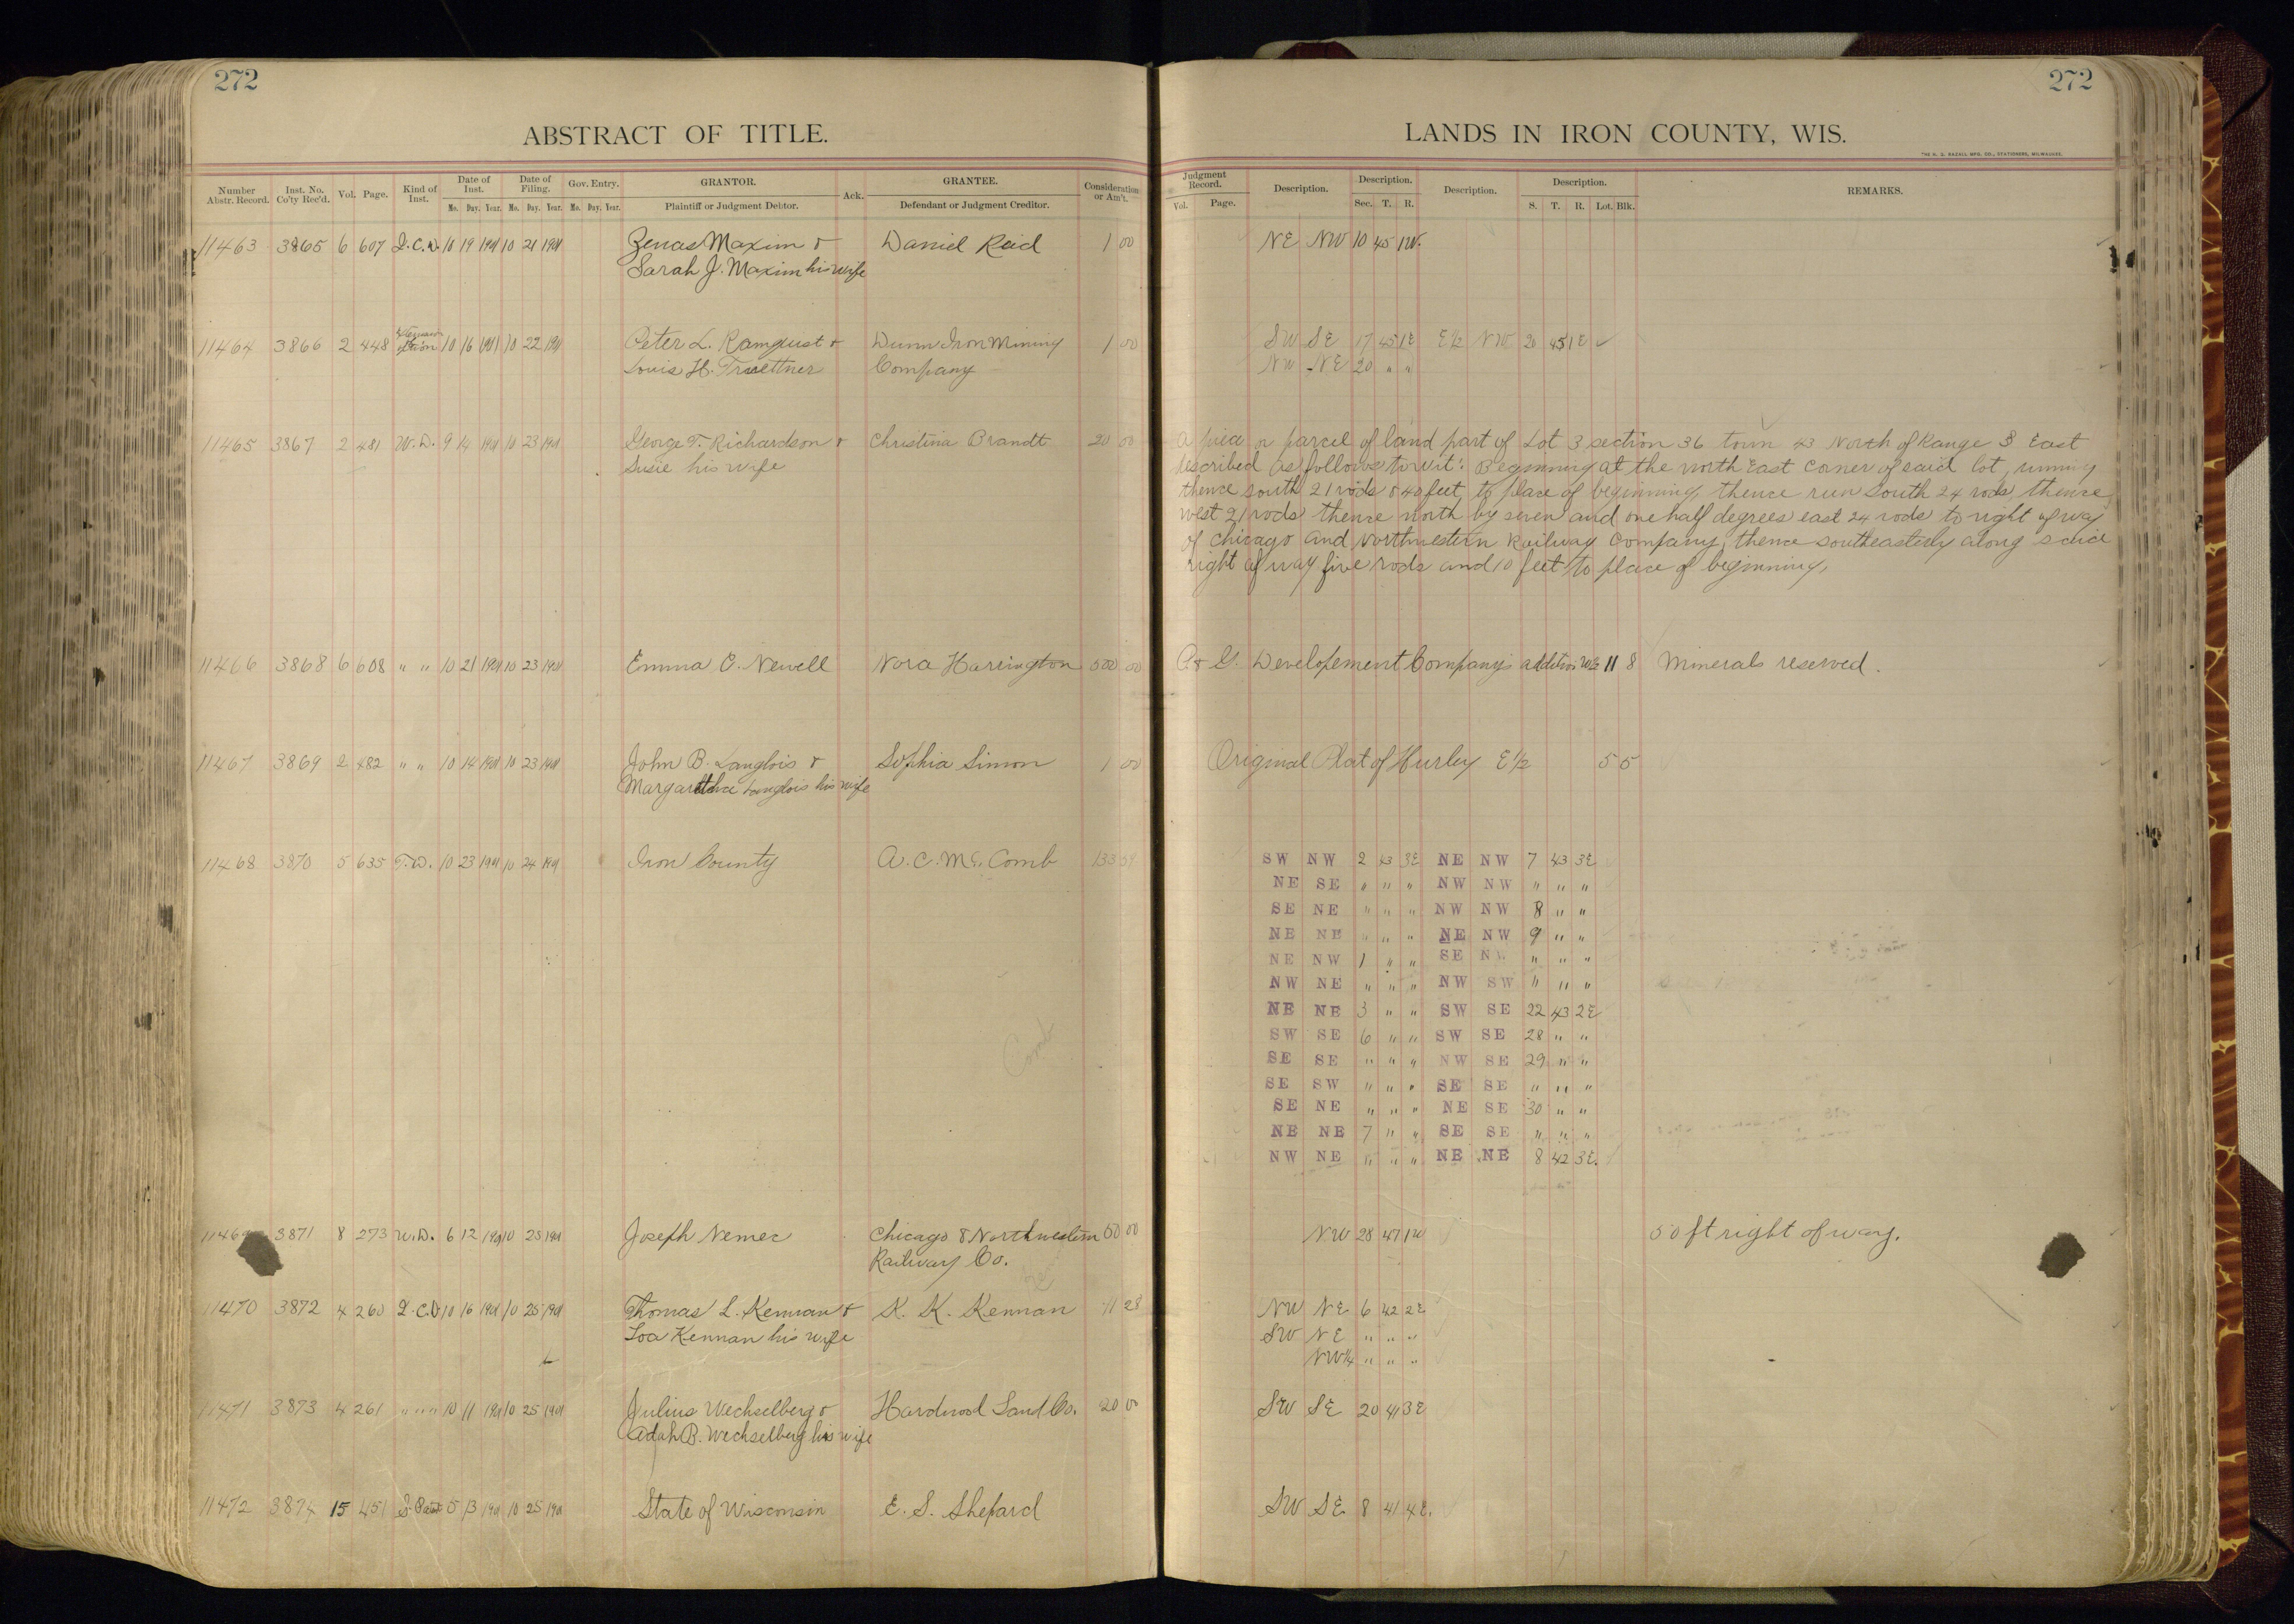 272
ABSTRACT OF TITLE.
Number Abstr. Record. Inst. No. Co'ty Rec'd. Vol. Page. Kind of Inst. Date of Inst. Mo. Day. Year. Date of Filing. Mo. Day. Year. Gov. Entry. Mo. Day. Year. GRANTOR. Plaintiff or Judgment Debtor. Ack. GRANTEE. Defendant or Judgment Creditor. Consideration or Am't.
272
LANDS IN IRON COUNTY, WIS.
THE H. G. RAZALL MFG. CO., STATIONERS, MILWAUKEE.
Judgment Record. Vol. Page. Description. Description. Sec. T. R. Description. Description. S. T. R. Lot. Blk. REMARKS.
11463 3865 6 607 Q.C.D. 10 19 1901 10 21 1901 Zenas Maxim & Daniel Reid 1 00 NE NW 10 45 1W.
Sarah J. Maxim his wife
11464 3866 2 448 10 16 1901 10 22 1901 Peter L. Ramquist & Dunn Iron Mining 1 00 SW SE 17 45 1E E½ NW 20 45 1E
Louis H. Truettner Company NW NE 20 " "
11465 3867 2 481 W.D. 9 14 1901 10 23 1901 George T. Richardson & Christina Brandt 20 00 A piece or parcel of land part of Lot 3 section 36 town 43 North of Range 3 East
Susie his wife described as follows towit: Beginning at the North East corner of said lot, running
thence south 21 rods & 40 feet, to place of beginning, thence run South 24 rods, thence
west 21 rods thence north by seven and one half degrees east 24 rods to right of way
of Chicago and Northwestern Railway Company, thence southeasterly along said
right of way five rods and 10 feet to place of beginning,
11466 3868 6 608 " " 10 21 1901 10 23 1901 Emma C. Newell Nora Harrington 500 00 A & G. Developement Company's addition W½ 11 8 Minerals reserved.
11467 3869 2 482 " " 10 14 1901 10 23 1901 John B. Langlois & Sophia Simon 1 00 Original Plat of Hurley E½ 5 5
Margaretha Langlois his wife
11468 3870 5 635 T.D. 10 23 1901 10 24 1901 Iron County A. C. McComb 133 59 SW NW 2 43 3E NE NW 7 43 3E
NE SE " " " NW NW " " "
SE NE " " " NW NW 8 " "
NE NE " " " NE NW 9 " "
NE NW 1 " " SE NW " " "
NW NE " " " NW SW " " "
NE NE 3 " " SW SE 22 43 2E
SW SE 6 " " SW SE 28 " "
SE SE " " " NW SE 29 " "
SE SW " " " SE SE " " "
SE NE " " " NE SE 30 " "
NE NE 7 " " SE SE " " "
NW NE " " " NE NE 8 42 3E.
Comb
1146 3871 8 273 W.D. 6 12 1901 10 25 1901 Joseph Nemec Chicago & Northwestern 50 00 NW 28 47 1W 50 ft right of way.
Railway Co.
11470 3872 4 260 Q.C.D. 10 16 1901 10 25 1901 Thomas L. Kennan & K. K. Kennan 11 28 NW NE 6 42 2E
Loa Kennan his wife SW NE " " "
NW¼ " " "
11471 3873 4 261 " " " 10 11 1901 10 25 1901 Julius Wechselberg & Hardwood Land Co. 20 00 SW SE 20 41 3E
Adah B. Wechselberg his wife
11472 3874 15 451 S. Patent 5 13 1901 10 25 1901 State of Wisconsin E. S. Shepard SW SE 8 41 4E.